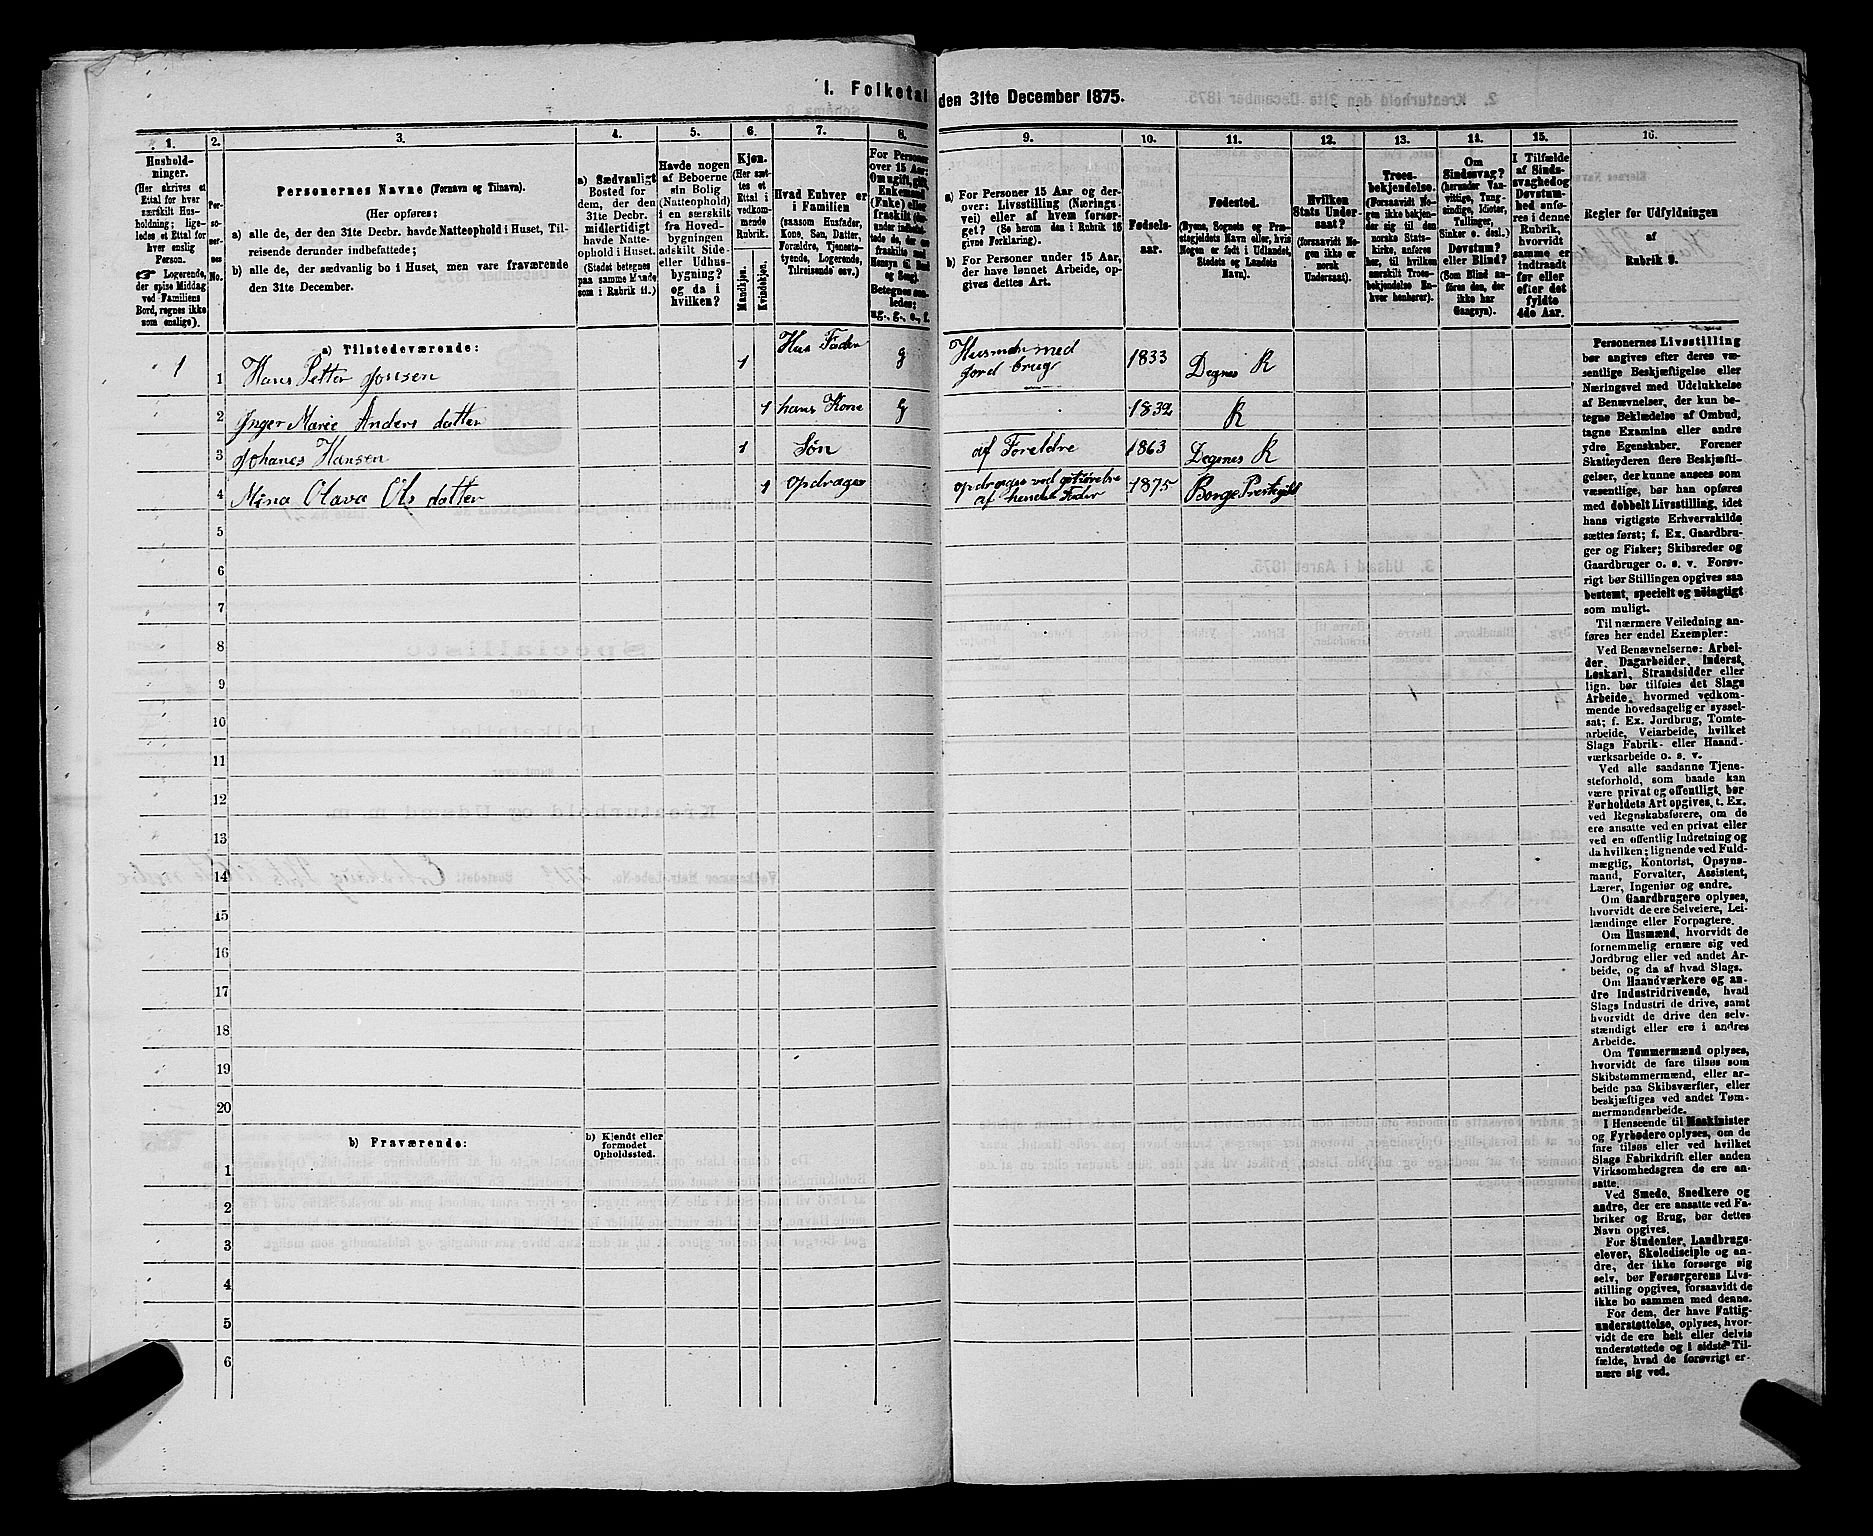 I. Folketal den 31te December 1875.
1. 2. 3. 4. 5. 6. 7. 8. 9. 10. 11. 12. 13. 14. 15. 16.
Hushold-
ninger.
(Her skrives et
Ettal for hver
særskilt Hus-
holdning; lige-
ledes et Ettal for
hver enslig
Person.
☞ Logerende,
der spise Middag
ved Familiens
Bord, regnes ikke
som enslige).
Per-
so-
ner-
nes
No.
Personernes Navne (Fornavn og Tilnavn).
(Her opføres:
a) alle de, der den 31te Decbr. havde Natteophold i Huset, Til-
reisende derunder indbefattede;
b) alle de, der sædvanlig bo i Huset, men vare fraværende
den 31te December.
a) Sædvanligt
Bosted for
dem, der den
31te Decbr.
midlertidigt
havde Natte-
ophold i Huset.
(Stedet betegnes
paa samme Maade
som i Rubrik 11.)
Havde nogen
af Beboerne
sin Bolig
(Natteophold)
i en særskilt
fra Hoved-
bygningen
adskilt Side-
eller Udhus-
bygning?
og da i
hvilken?
Kjøn.
(Her sæt-
tes et
Ettal i
vedkom-
mende
Rubrik.
Mandkjøn.
Kvindekjøn.
Hvad Enhver er
i Familien
(saasom Husfader,
Kone, Søn, Datter,
Forældre, Tjeneste-
tyende, Logerende,
Tilreisende osv.)
For Personer
over 15 Aar:
Om ugift, gift,
Enkemand
(Enke) eller
fraskilt
Betegnes saa-
ledes:
ug., g., e., f.
a) For Personer 15 Aar og der-
over: Livsstilling (Nærings-
vei) eller af hvem forsør-
get? (Se herom den i Rubrik 16
givne Forklaring).
b) For Personer under 15 Aar,
der have lønnet Arbeide, op-
gives dettes Art.
Fødsels-
aar.
Fødested.
(Byens, Sognets og Præ-
stegjeldets Navn eller, hvis
Nogen er født i Udlandet,
Stedets og Landets
Navn).
Hvilken
Stats Under-
saat?
(forsaavidt No-
gen ikke er
norsk
Undersaat).
Troes-
bekjendelse.
(Forsaavidt No-
gen ikke bekjen-
der sig til den
norske Stats-
kirke, anføres
her, til hvilken
særskilt Troes-
bekjendelse En-
hver henhører).
Om
Sindssvag?
(herunder Van-
vittige, Tung-
sindige, Idioter,
Tullinger,
Sinker o. desl.)
Døvstum?
eller Blind?
(Som Blind an-
føres den, der
ikke har
Gangsyn).
I Tilfælde
af Sinds-
svaghed og
Døvstum-
hed anfø-
res i denne
Rubrik,
hvorvidt
samme er
indtraadt
før eller
efter det
fyldte
4de Aar.
Regler for Udfyldningen
af
Rubrik 9.
a) Tilstedeværende:
1 1 Hans Petter Jonsen 1 Hus Fader g Husman med Jord brug 1833 Degnes R
2 Inger Marie Anders datter 1 hans Kone g 1832 R
3 Johanes Hansen 1 Søn af Foreldre 1863 Degnes R
4 Mina Olava Ols datter 1 opdrages af hendes Fader 1875 Borge Prestegild
5
6
7
8
9
10
11
12
13
14
15
16
17
18
19
20
b) Fraværende:
b) Kjendt eller
formodet
Opholdssted.
1
2
3
4
5
6
Personernes Livsstilling
bør angives efter deres væ-
sentlige Beskjæftigelse eller
Næringsvei med Udelukkelse
af Benævnelser, der kun be-
tegne Beklædelse af Ombud,
tagne Examina eller andre
ydre Egenskaber. Forener
Skatteyderen flere Beskjæfti-
gelser, der kunne ansees som
væsentlige, bør han opføres
med dobbelt Livsstilling, idet
hans vigtigste Erhvervskilde
sættes først; f. Ex. Gaardbru-
ger og Fisker; Skibsreder og
Gaardbruger o. s. v. Forøv-
rigt bør Stillingen opgives saa
bestemt, specielt og nöiagtigt
som muligt.
Til nærmere Veiledning an-
føres her endel Exempler:
Ved Benævnelserne: Arbei-
der, Dagarbeider, Inderst,
Løskarl, Strandsidder eller
lign. bør tilføies det Slags
Arbeide, hvormed vedkom-
mende hovedsagelig er syssel-
sat; f. Ex. Jordbrug, Tomte-
arbeide, Veiarbeide, hvilket
Slags Fabrik- eller Haand-
værksarbeide o. s. v.
Ved alle saadanne Tjene-
steforhold, som baade kan
være privat og offentligt, bør
Forholdets Art opgives, t. Ex.
ved Regnskabsførere, om de
ere ansatte ved en privat eller
ved en offentlig Indretning og
da hvilken; lignende ved Fuld-
mægtig, Kontorist, Opsyns-
mand, Forvalter, Assistent,
Lærer, Ingeniør og andre.
Om Gaardbrugere oplyses,
hvorvidt de ere Selveiere, Lei-
lændinge eller Forpagtere.
Om Husmænd, hvorvidt de
fornemmelig ernære sig ved
Jordbrug eller ved andet Ar-
beide, og da af hvad Slags.
Om Haandværkere og an-
dre Industridrivende, hvad
Slags Industri de drive, samt
hvorvidt de drive den selv-
stændigt eller ere i andres
Arbeide.
Om Tømmermænd oplyses,
hvorvidt de fare tilsøs som
Skibstømmermænd, eller ar-
beide paa Skibsværfter, eller
beskjæftiges ved andet Tøm-
mermandsarbeide.
I Henseende til Maskinister
og Fyrbødere oplyses, om de
fare tilsøs eller ved hvilket
Slags Fabrikdrift eller anden
Virksomhedsgren de ere an-
satte.
Ved Smede, Snedkere og
andre, der ere ansatte ved Fa-
briker og Brug, bør dettes
Navn opgives.
For Studenter, Landbrugs-
elever, Skoledisciple og an-
dre, der ikke forsørge sig
selv, bør Forsørgerens Livs-
stilling opgives, forsaavidt de
ikke bo sammen med denne.
For dem, der have Fattig-
understøttelse, oplyses, hvor-
vidt de ere helt eller delvis
understøttede og i sidste Til-
fælde, hvad de forøvrigt er-
nære sig ved.